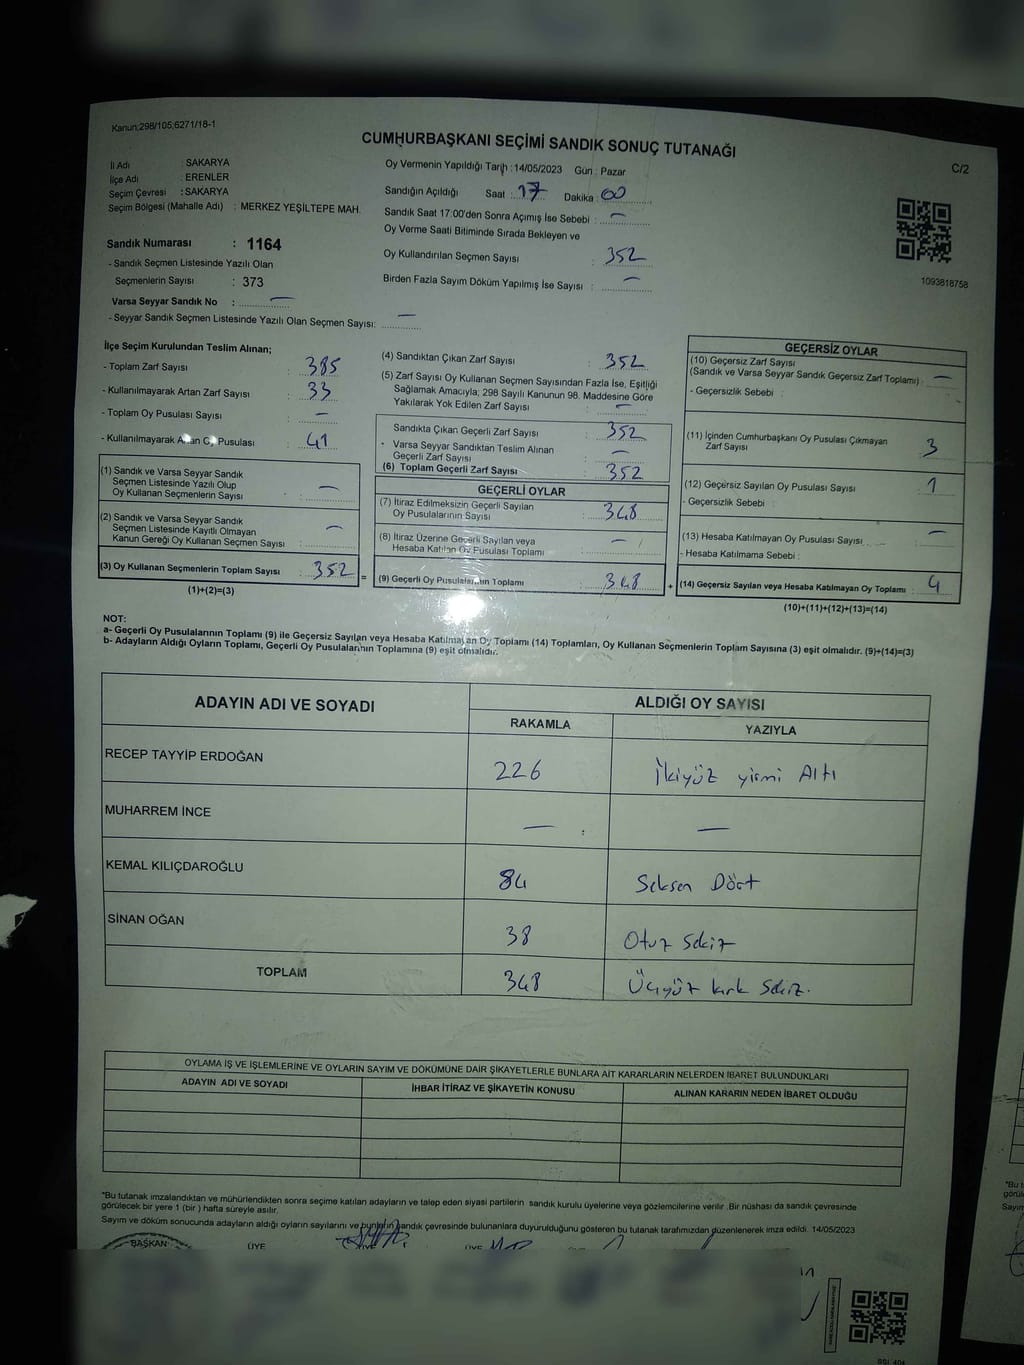 Kanun;298/105;6271/18-1
CUMHURBAŞKANI SEÇİMİ SANDIK SONUÇ TUTANAĞI
C/2
İl Adı : SAKARYA
İlçe Adı : ERENLER
Seçim Çevresi : SAKARYA
Seçim Bölgesi (Mahalle Adı) : MERKEZ YEŞİLTEPE MAH.
Oy Vermenin Yapıldığı Tarih : 14/05/2023 Gün : Pazar
Sandığın Açıldığı Saat : 17 Dakika : 00
Sandık Saat 17:00'den Sonra Açımış İse Sebebi : —
Oy Verme Saati Bitiminde Sırada Bekleyen ve
Oy Kullandırılan Seçmen Sayısı : 352
Birden Fazla Sayım Döküm Yapılmış İse Sayısı : —
1093818758
Sandık Numarası : 1164
- Sandık Seçmen Listesinde Yazılı Olan
Seçmenlerin Sayısı : 373
Varsa Seyyar Sandık No : —
- Seyyar Sandık Seçmen Listesinde Yazılı Olan Seçmen Sayısı: —
İlçe Seçim Kurulundan Teslim Alınan;
- Toplam Zarf Sayısı : 385
- Kullanılmayarak Artan Zarf Sayısı : 33
- Toplam Oy Pusulası Sayısı : —
- Kullanılmayarak Artan Oy Pusulası : 41
(1) Sandık ve Varsa Seyyar Sandık
Seçmen Listesinde Yazılı Olup
Oy Kullanan Seçmenlerin Sayısı : —
(2) Sandık ve Varsa Seyyar Sandık
Seçmen Listesinde Kayıtlı Olmayan
Kanun Gereği Oy Kullanan Seçmen Sayısı : —
(3) Oy Kullanan Seçmenlerin Toplam Sayısı : 352
(1)+(2)=(3)
=
(4) Sandıktan Çıkan Zarf Sayısı : 352
(5) Zarf Sayısı Oy Kullanan Seçmen Sayısından Fazla İse, Eşitliği
Sağlamak Amacıyla; 298 Sayılı Kanunun 98. Maddesine Göre
Yakılarak Yok Edilen Zarf Sayısı : —
Sandıkta Çıkan Geçerli Zarf Sayısı : 352
- Varsa Seyyar Sandıktan Teslim Alınan
Geçerli Zarf Sayısı : —
(6) Toplam Geçerli Zarf Sayısı : 352
GEÇERLİ OYLAR
(7) İtiraz Edilmeksizin Geçerli Sayılan
Oy Pusulalarının Sayısı : 348
(8) İtiraz Üzerine Geçerli Sayılan veya
Hesaba Katılan Oy Pusulası Toplamı : —
(9) Geçerli Oy Pusulalarının Toplamı : 348
+
GEÇERSİZ OYLAR
(10) Geçersiz Zarf Sayısı
(Sandık ve Varsa Seyyar Sandık Geçersiz Zarf Toplamı) : —
- Geçersizlik Sebebi :
(11) İçinden Cumhurbaşkanı Oy Pusulası Çıkmayan
Zarf Sayısı : 3
(12) Geçersiz Sayılan Oy Pusulası Sayısı : 1
- Geçersizlik Sebebi :
(13) Hesaba Katılmayan Oy Pusulası Sayısı : —
- Hesaba Katılmama Sebebi :
(14) Geçersiz Sayılan veya Hesaba Katılmayan Oy Toplamı : 4
(10)+(11)+(12)+(13)=(14)
NOT:
a- Geçerli Oy Pusulalarının Toplamı (9) ile Geçersiz Sayılan veya Hesaba Katılmayan Oy Toplamı (14) Toplamları, Oy Kullanan Seçmenlerin Toplam Sayısına (3) eşit olmalıdır. (9)+(14)=(3)
b- Adayların Aldığı Oyların Toplamı, Geçerli Oy Pusulalarının Toplamına (9) eşit olmalıdır.
ADAYIN ADI VE SOYADI ALDIĞI OY SAYISI
RAKAMLA YAZIYLA
RECEP TAYYİP ERDOĞAN 226 İkiyüz yirmi Altı
MUHARREM İNCE — —
KEMAL KILIÇDAROĞLU 84 Seksen Dört
SİNAN OĞAN 38 Otuz Sekiz
TOPLAM 348 Üçyüz kırk Sekiz.
OYLAMA İŞ VE İŞLEMLERİNE VE OYLARIN SAYIM VE DÖKÜMÜNE DAİR ŞİKAYETLERLE BUNLARA AİT KARARLARIN NELERDEN İBARET BULUNDUKLARI
ADAYIN ADI VE SOYADI İHBAR İTİRAZ VE ŞİKAYETİN KONUSU ALINAN KARARIN NEDEN İBARET OLDUĞU
*Bu tutanak imzalandıktan ve mühürlendikten sonra seçime katılan adayların ve talep eden siyasi partilerin sandık kurulu üyelerine veya gözlemcilerine verilir .Bir nüshası da sandık çevresinde
görülecek bir yere 1 (bir ) hafta süreyle asılır.
Sayım ve döküm sonucunda adayların aldığı oyların sayılarını ve bunların sandık çevresinde bulunanlara duyurulduğunu gösteren bu tutanak tarafımızdan düzenlenerek imza edildi. 14/05/2023
BAŞKAN ÜYE ÜYE ÜYE